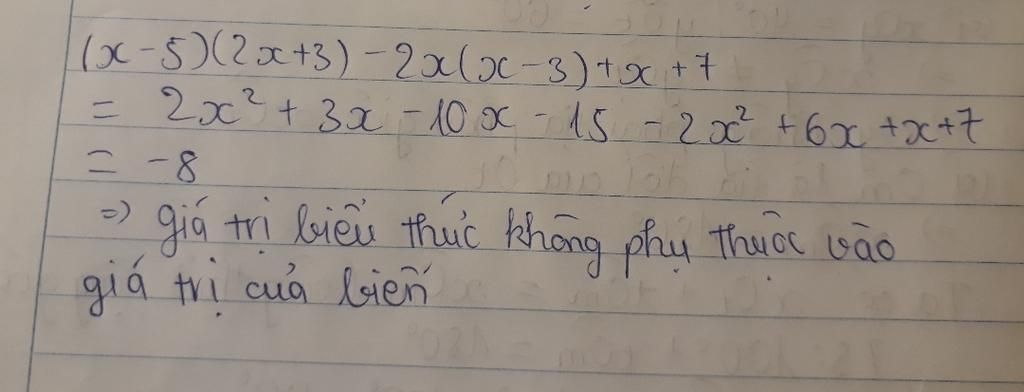 (x - 5)(2x+3) - 2x(x - 3) + x + 7
= 2x² + 3x - 10x - 15 - 2x² + 6x + x + 7
= -8
=> giá trị biểu thức không phụ thuộc vào
giá trị của biến